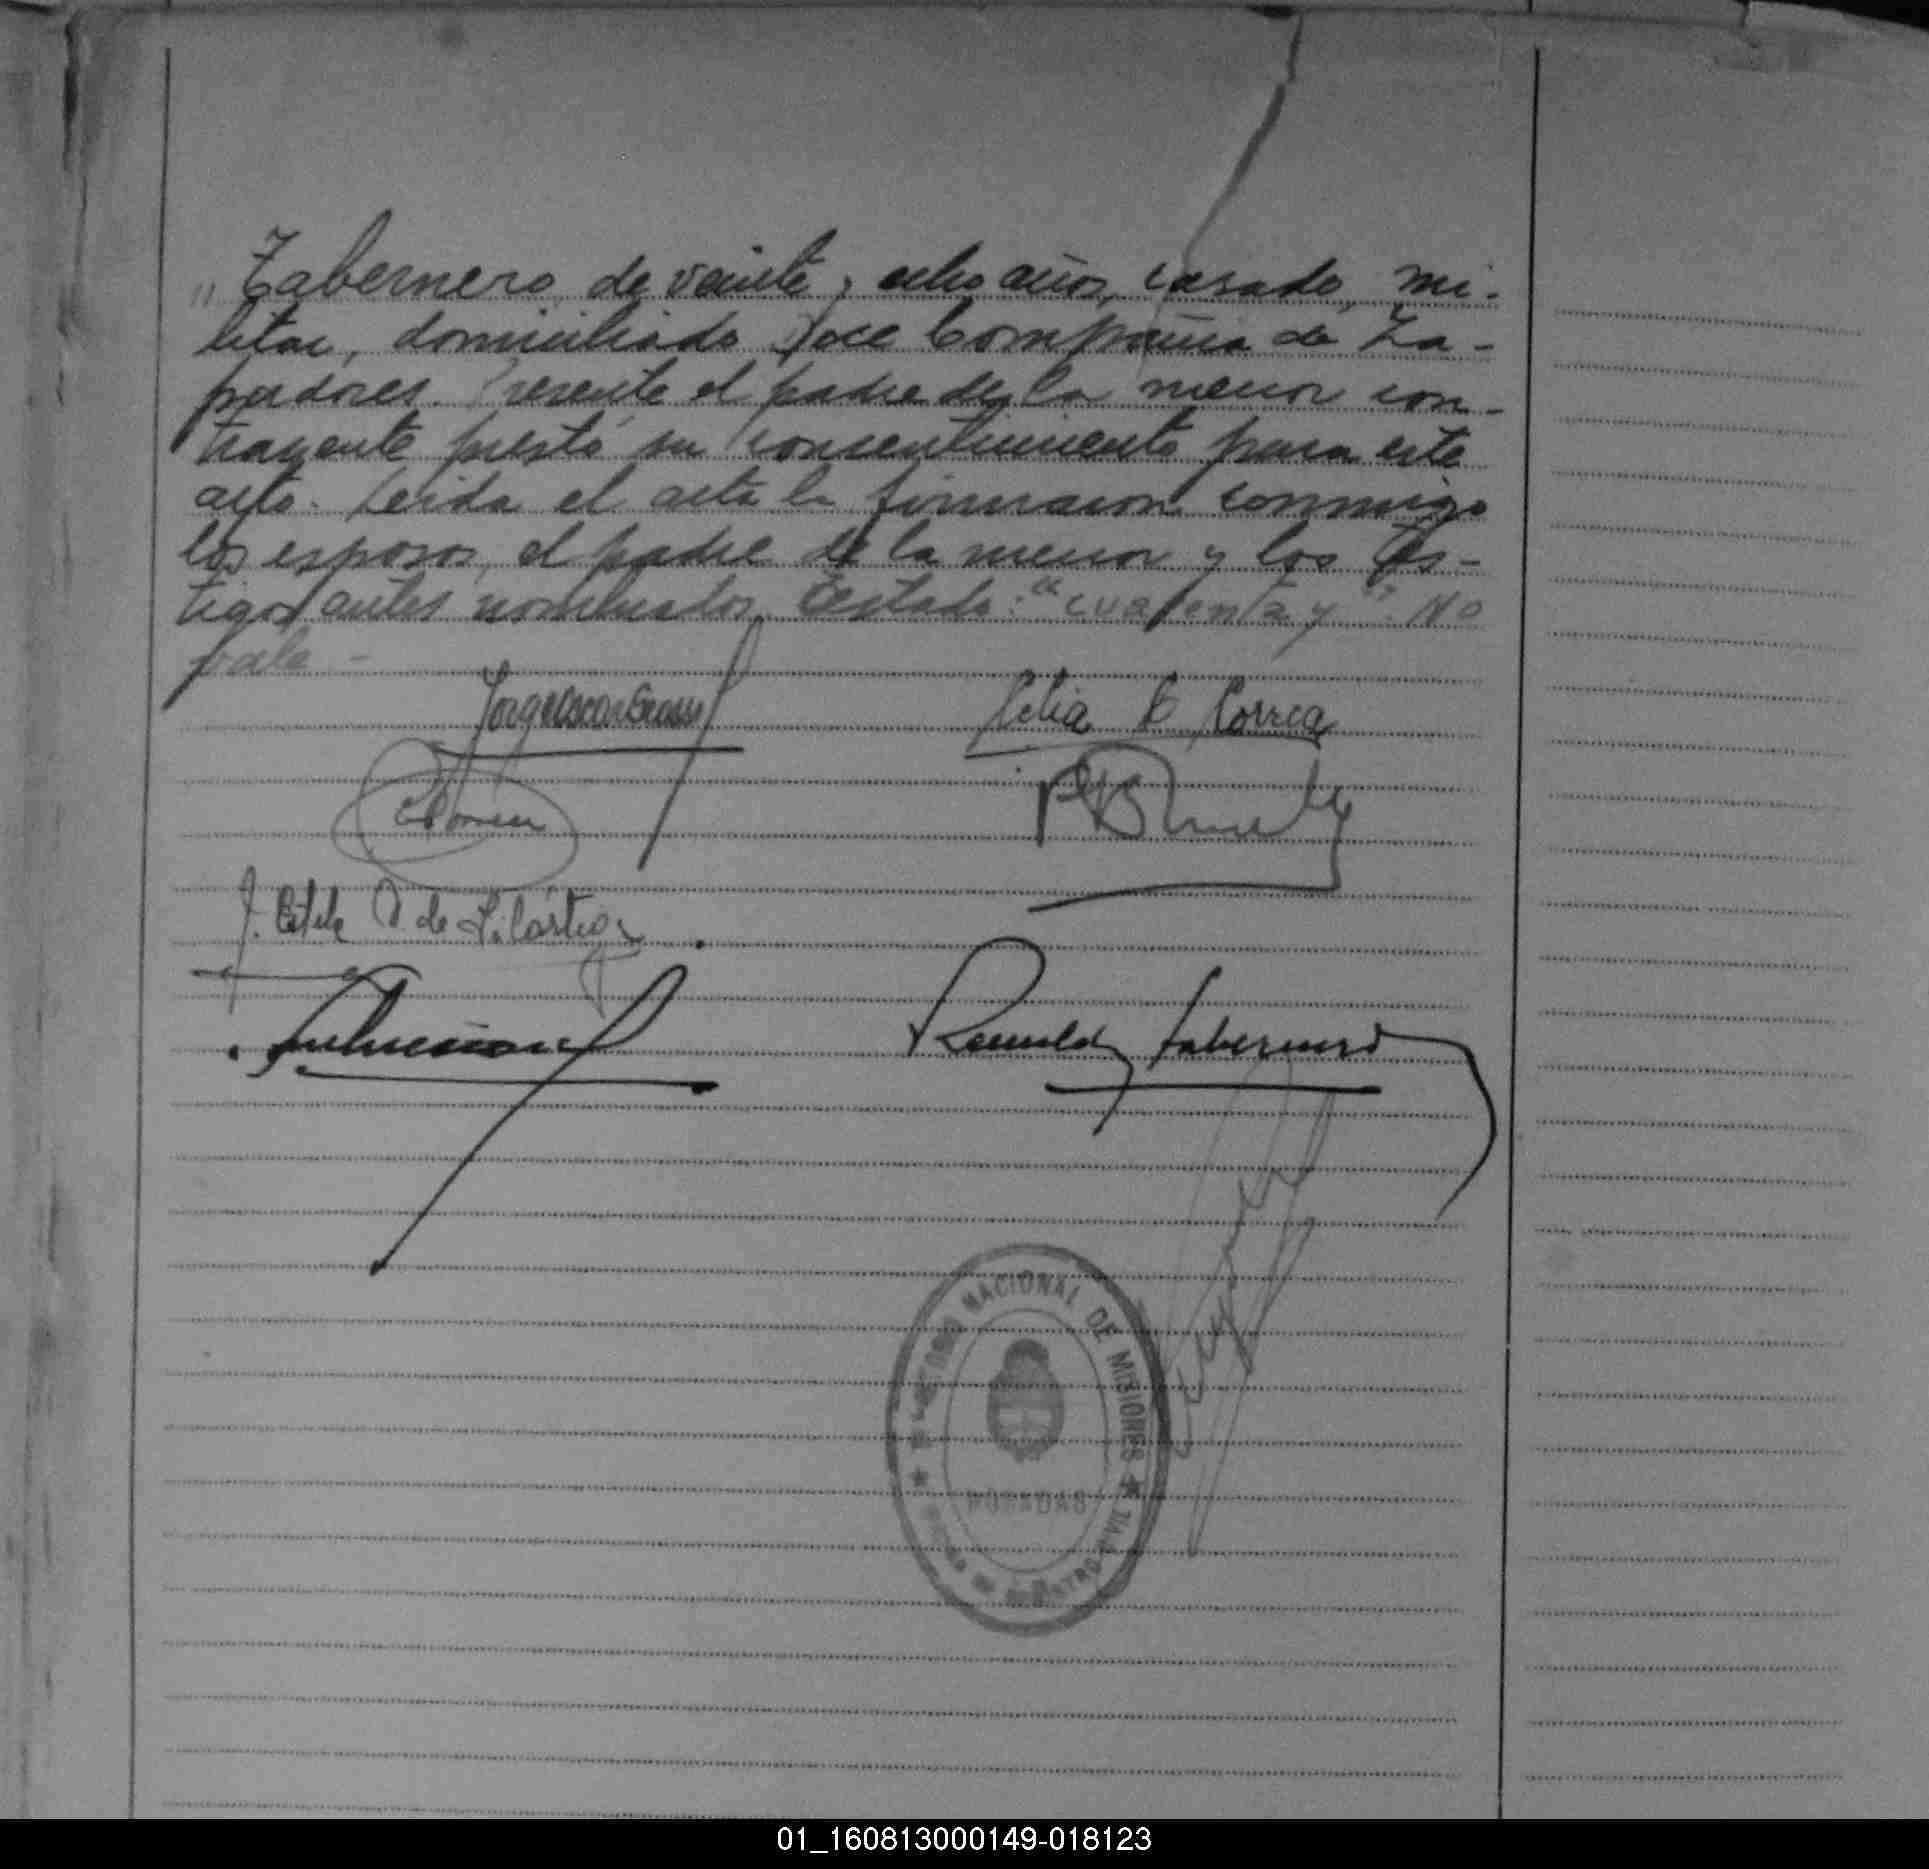 " Tabernero, de veinte y ocho años, casado, mi-
litar, domiciliado Doce Compañia de Za-
padores. Presente el padre de la menor con-
trayente prestó su consentimiento para este
acto. Leida el acta la firmaron conmigo
los esposos, el padre de la menor y los tes-
tigos antes nombrados. Testado: "cuarenta y". No
vale -
Jorge Oscar
Celia E Correa
J. Estela O. de
Romualdo Tabernero
NACIONAL DE MISIONES ★
POSADAS
★ DE REGISTRO CIVIL
01_160813000149-018123